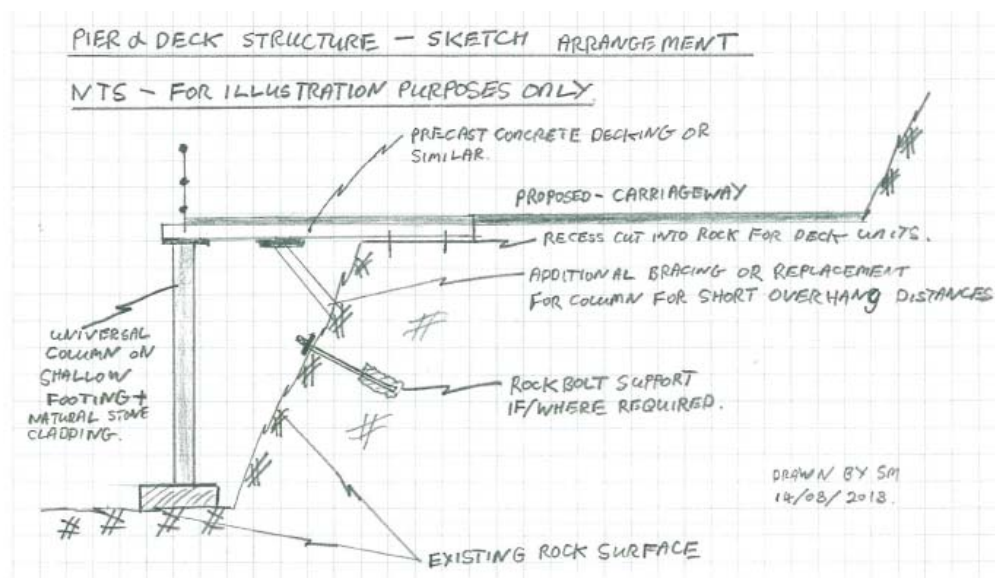 PIER & DECK STRUCTURE - SKETCH ARRANGEMENT
NTS - FOR ILLUSTRATION PURPOSES ONLY
PRECAST CONCRETE DECKING OR
SIMILAR.
PROPOSED - CARRIAGEWAY
RECESS CUT INTO ROCK FOR DECK UNITS.
ADDITIONAL BRACING OR REPLACEMENT
FOR COLUMN FOR SHORT OVERHANG DISTANCES
UNIVERSAL
COLUMN ON
SHALLOW
FOOTING +
NATURAL STONE
CLADDING.
ROCK BOLT SUPPORT
IF/WHERE REQUIRED.
DRAWN BY SM
14/08/2018.
EXISTING ROCK SURFACE